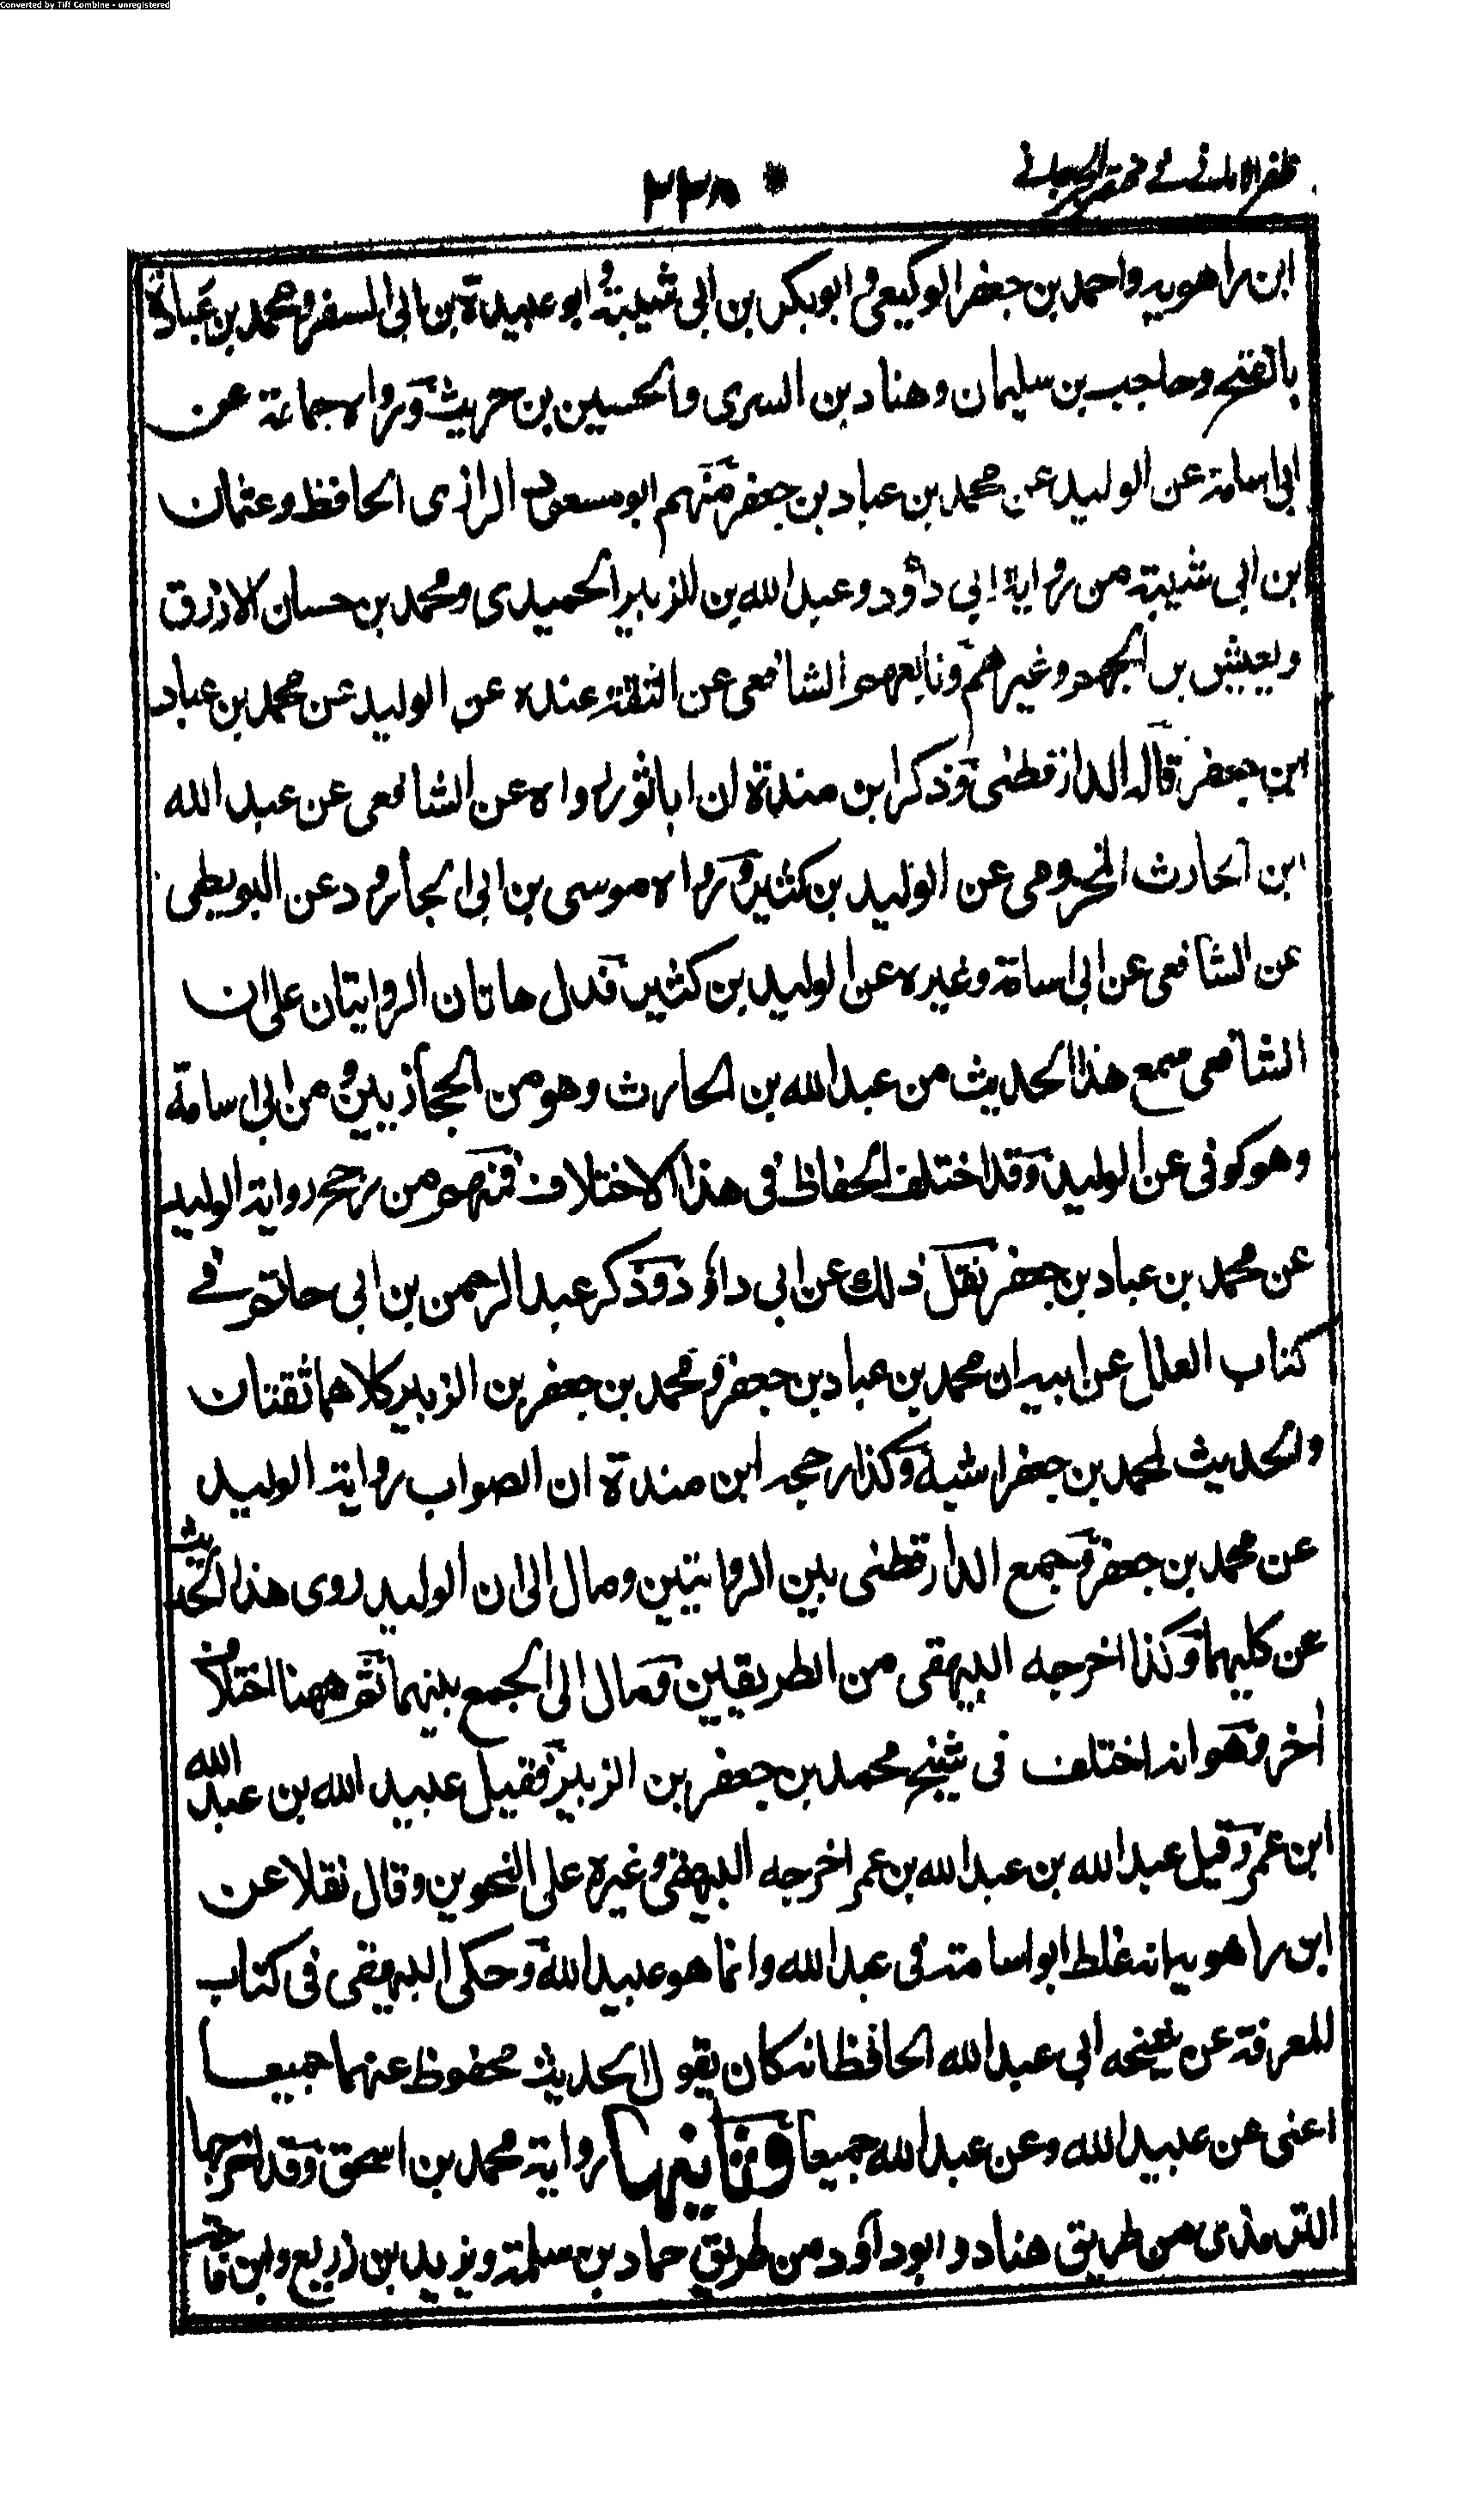 Converted by Tiff Combine - unregistered
ظفر الامانے فے مختصر الجرجانے
* ٢٢٨
ابن راهويه واحمد بن جعفر الوكيعى وابو بكر بن ابى شيبة وابو عبيدة بن ابى السفر ومحمد بن عبادة
بالفتح وحاجب بن سليمان وهناد بن السرى والحسين بن حريث ورواه جماعة عن
ابى اسامة عن الوليد عن محمد بن عباد بن جعفر منهم ابو مسعود الرازى الحافظ وعثمان
ابن ابى شيبة من رواية ابى داؤد وعبد الله بن الزبير الحميدى ومحمد بن حسان الازرق
ويعيش بن الجهم وغيرهم وتابعهم الشافعى عن الثقة عنده عن الوليد عن محمد بن عباد
ابن جعفر قاله الدارقطنى وذكر ابن مندة ان ابا ثور رواه عن الشافعى عن عبد الله
ابن الحارث المخزومى عن الوليد بن كثير ورواه موسى بن ابى الجارود عن البويطى
عن الشافعى عن ابى اسامة وغيره عن الوليد بن كثير فدل هاتان الروايتان على ان
الشافعى سمع هذا الحديث من عبد الله بن الحارث وهو من الحجازيين ومن ابى اسامة
وهو كوفى عن الوليد وقد اختلف الحفاظ فى هذا الاختلاف فمنهم من رجح رواية الوليد
عن محمد بن عباد بن جعفر نقل ذلك عن ابى داؤد وذكر عبد الرحمن بن ابى حاتم فے
كتاب العلل عن ابيه ان محمد بن عباد بن جعفر ومحمد بن جعفر بن الزبير كلاهما ثقتان
والحديث لمحمد بن جعفر اشبه وكذا رجحه ابن مندة ان الصواب رواية الوليد
عن محمد بن جعفر وجمع الدارقطنى بين الروايتين ومال الى ان الوليد روى هذا الحديث
عن كليهما وكذا اخرجه البيهقى من الطريقين ومال الى الجمع بينهما ثم ههنا اختلاف
اخر وهو انه اختلف فى شيخ محمد بن جعفر بن الزبير فقيل عبيد الله بن عبد الله
ابن عمر وقيل عبد الله بن عبد الله بن عمر اخرجه البيهقى وغيره على النحوين وقال نقلا عن
ابن راهويه انه غلط ابو اسامة فى عبد الله وانما هو عبيد الله وحكى البيهقى فى كتاب
المعرفة عن شيخه ابى عبد الله الحافظ انه كان يقول الحديث محفوظ عنهما جميعا
اعنى عن عبيد الله وعن عبد الله جميعا وثانيها رواية محمد بن اسحق وقد اخرجها
الترمذى من طريق هناد وابو داؤد من طريق حماد بن سلمة ويزيد بن زريع وابن ماجه